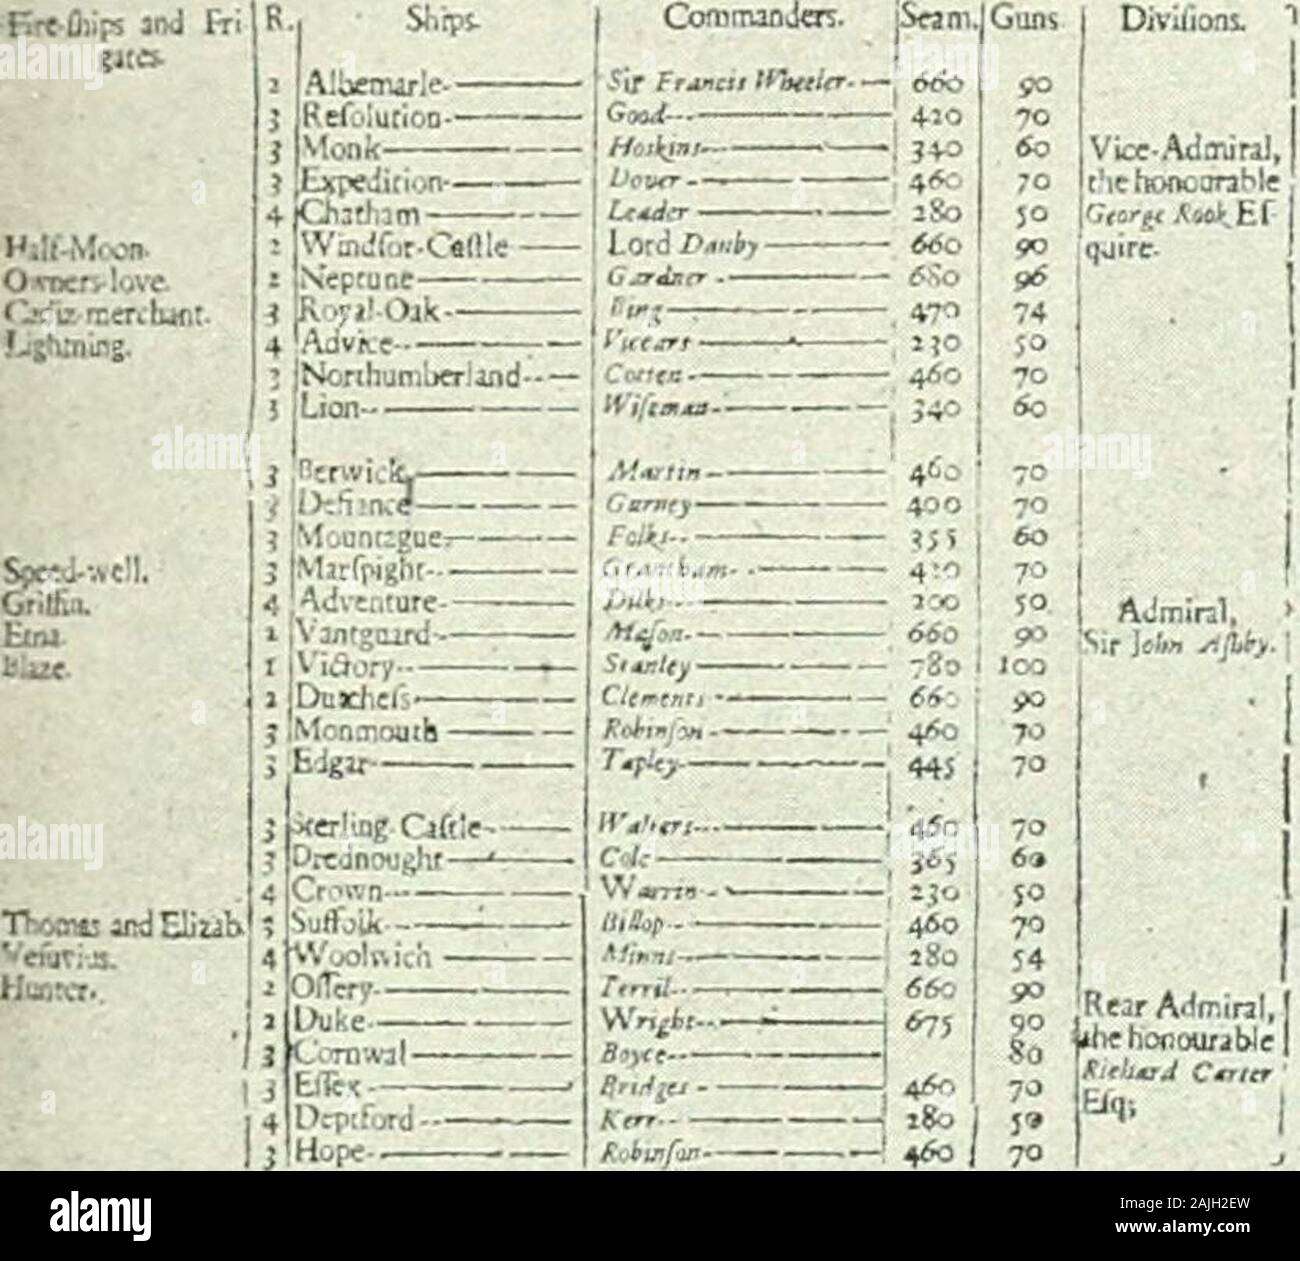 Fire-ſhips and Fri R. Ships. Commanders. Seam. Guns Diviſions.
gates.
2 Albemarle- Sir Francis Wheeler- 660 90
3 Reſolution- Good- 420 70
3 Monk- Hoskins- 340 60 Vice-Admiral,
3 Expedition- Dover- 460 70 the honourable
4 Chatham Leader 280 50 George Rook Eſ-
Half-Moon. 2 Windſor-Caſtle Lord Danby 660 90 quire.
Owners-love. 2 Neptune Gardner - 680 96
Cadiz-merchant. 3 Royal-Oak- Bing 470 74
Lightning. 4 Advice- Viccars 230 50
3 Northumberland- Cotten- 460 70
3 Lion- Wiſeman- 340 60
3 Berwick, Martin- 460 70
3 Defiance Gurney 400 70
3 Mountague- Folks- 355 60
Speed-well. 3 Warſpight- Grantham- 420 70
Griffin. 4 Adventure- Dilks- 200 50 Admiral,
Etna. 2 Vantguard- Maſon- 660 90 Sir John Aſhby.
Blaze. 1 Victory- Stanley 780 100
2 Dutcheſs- Clements- 660 90
3 Monmouth Robinſon- 460 70
3 Edgar- Tapley- 445 70
3 Sterling-Caſtle- Walters- 460 70
3 Drednought Cole 365 60
4 Crown- Warrin- 230 50
Thomas and Elizab. 3 Suffolk- Billop- 460 70
Veſuvius. 4 Woolwich Minns- 280 54
Hunter. 2 Oſſery- Terril- 660 90 Rear Admiral,
2 Duke- Wright- 675 90 the honourable
3 Cornwal Boyce- 80 Richard Carter
3 Eſſex Bridges - 460 70 Eſq;
4 Deptford- Kerr- 280 50
3 Hope- Robinſon- 460 70
alamy
alamy
alamy
alamy
alamy
Image ID: 2AJH2EW
www.alamy.com